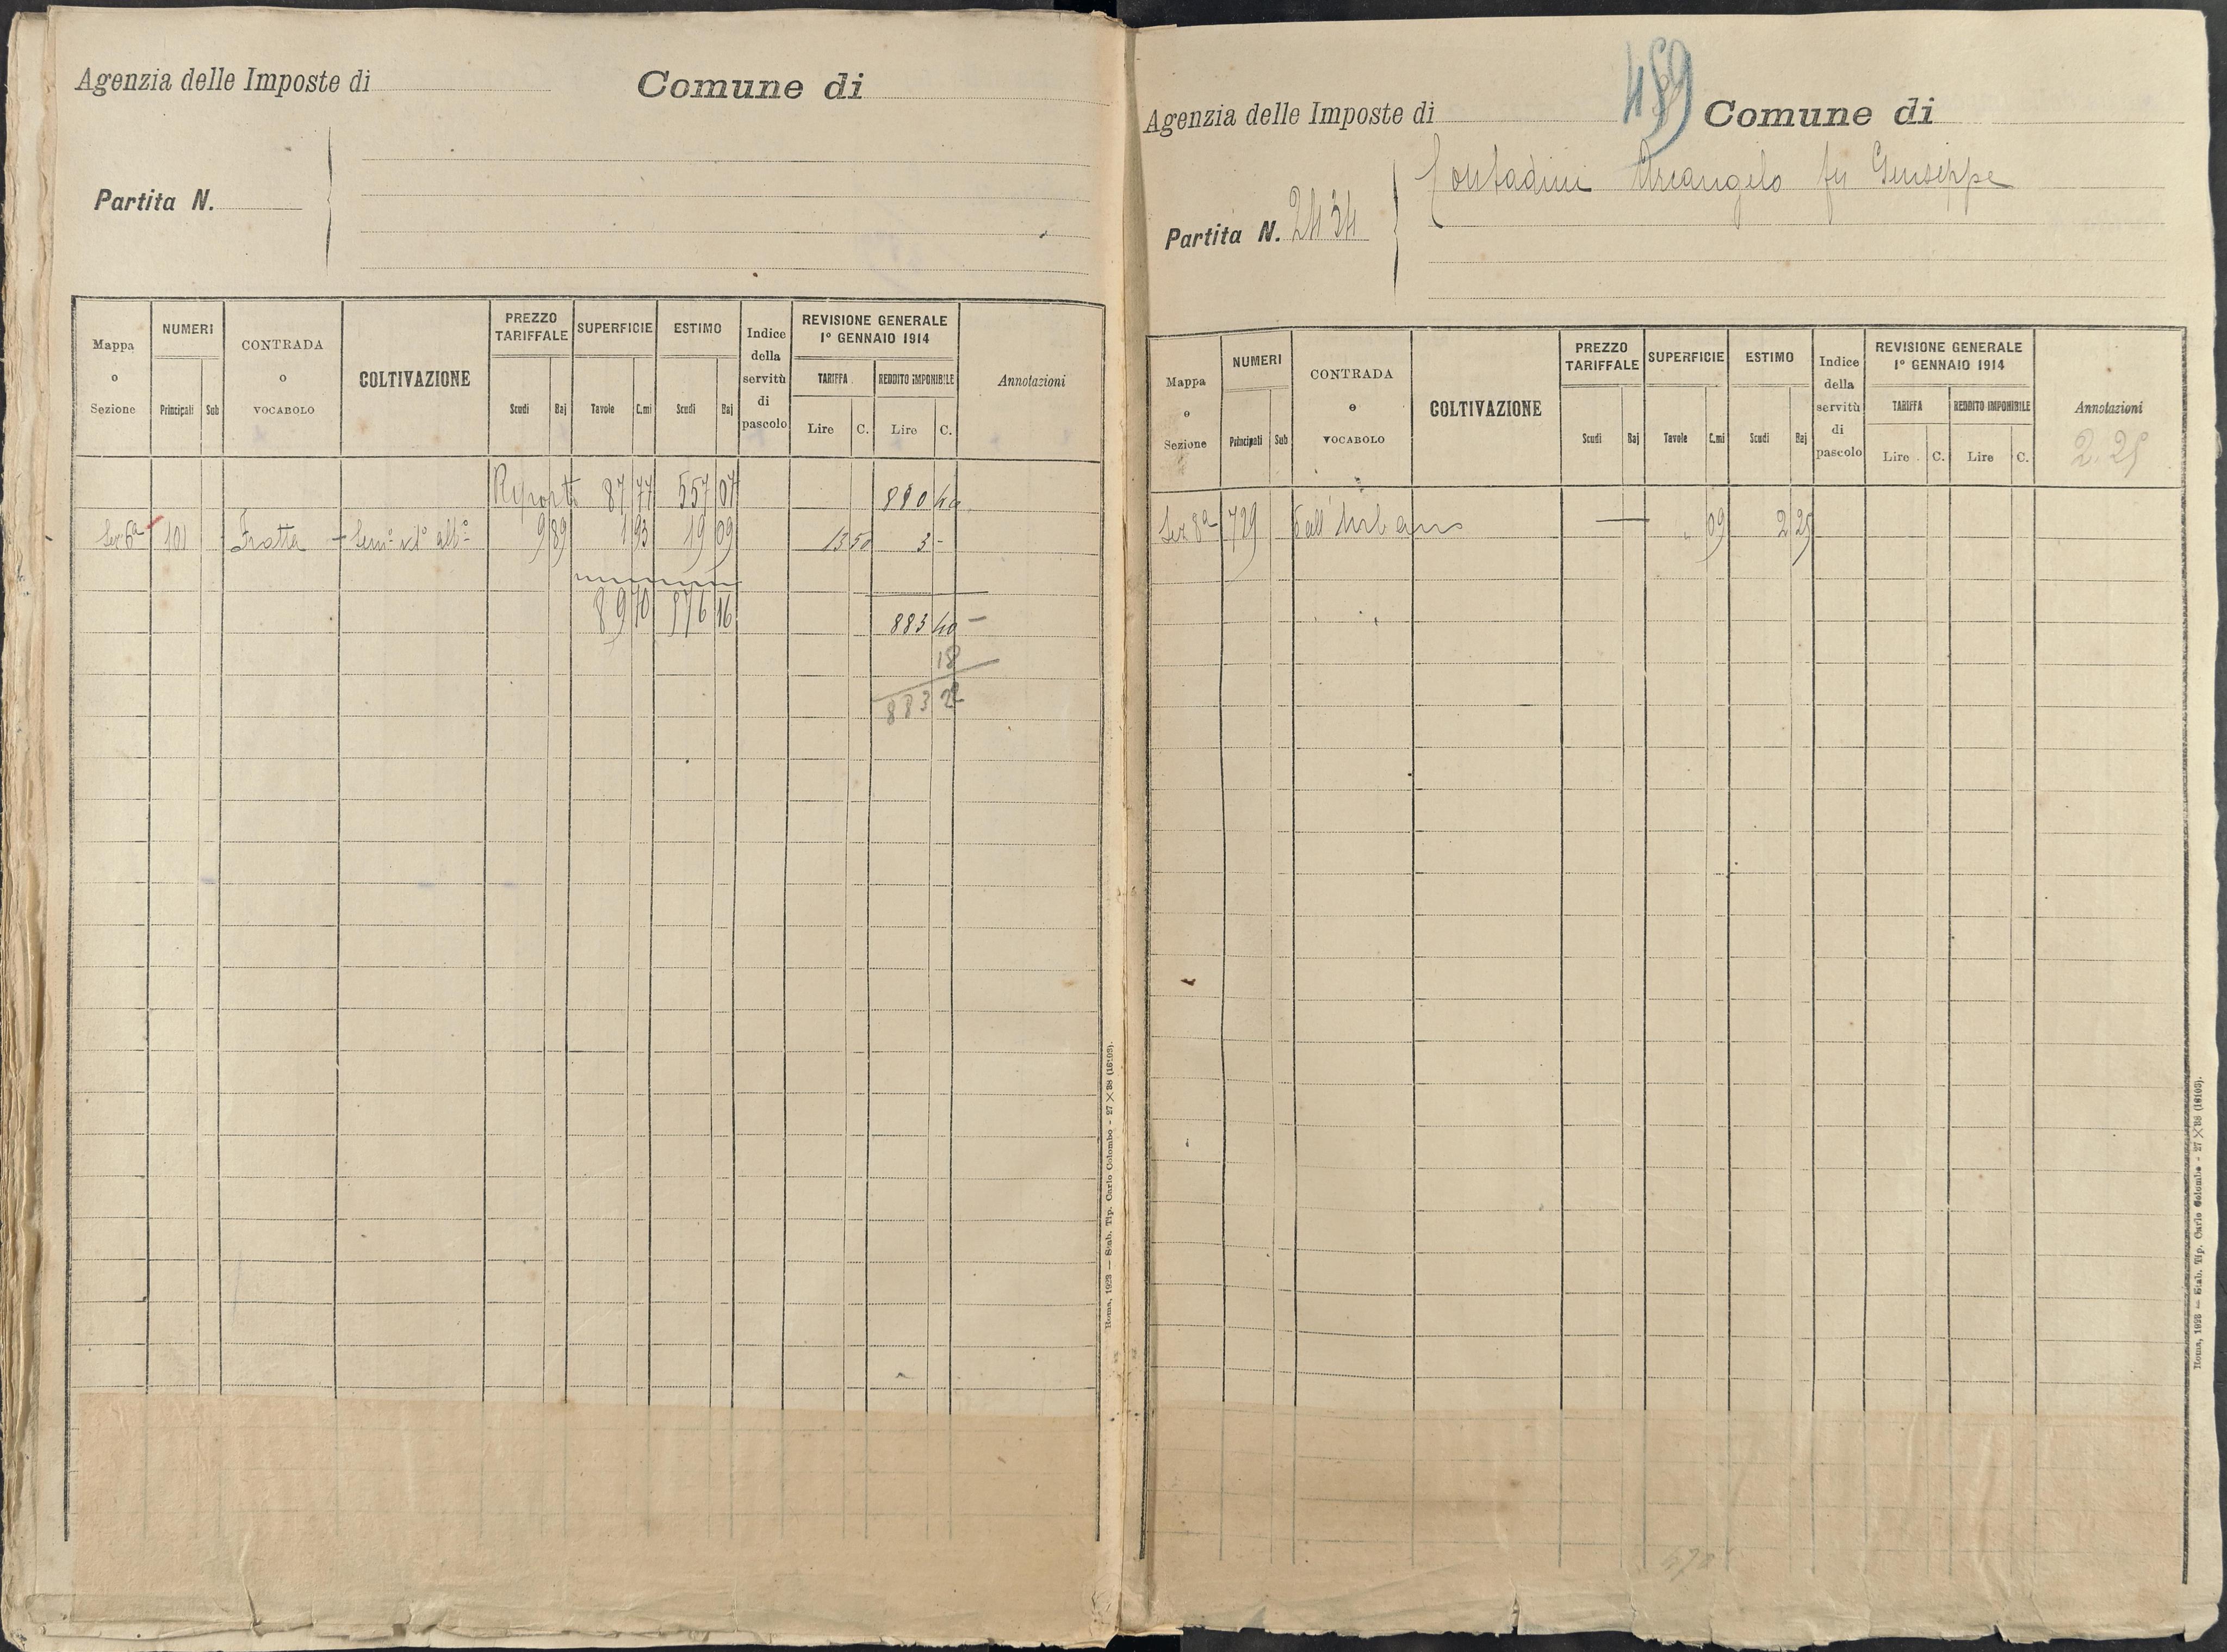 Agenzia delle Imposte di
Comune di
Partita N.
Mappa o Sezione
NUMERI
Principali
Sub
CONTRADA o VOCABOLO
COLTIVAZIONE
PREZZO TARIFFALE
Scudi
Baj
SUPERFICIE
Tavole
C.mi
ESTIMO
Scudi
Baj
Indice della servitù di pascolo
REVISIONE GENERALE 1° GENNAIO 1914
TARIFFA
Lire
C.
REDDITO IMPONIBILE
Lire
C.
Annotazioni
Riporto 87 77 557 07 880 40
Sez 6ª 101 Fratta Sem° vit° alb° 9 89 1 93 19 09 13 50 3 -
89 70 576 16 883 40 -
18
883 22
Roma, 1923 — Stab. Tip. Carlo Colombo - 27 X 38 (16103).
459
Agenzia delle Imposte di
Comune di
Contadini Arcangelo fu Giuseppe
Partita N. 2434
Mappa o Sezione
NUMERI
Principali
Sub
CONTRADA o VOCABOLO
COLTIVAZIONE
PREZZO TARIFFALE
Scudi
Baj
SUPERFICIE
Tavole
C.mi
ESTIMO
Scudi
Baj
Indice della servitù di pascolo
REVISIONE GENERALE 1° GENNAIO 1914
TARIFFA
Lire
C.
REDDITO IMPONIBILE
Lire
C.
Annotazioni
2.25
Sez 8ª 729 — " 09 2 25
Roma, 1923 — Stab. Tip. Carlo Colombo - 27 X 38 (16103).